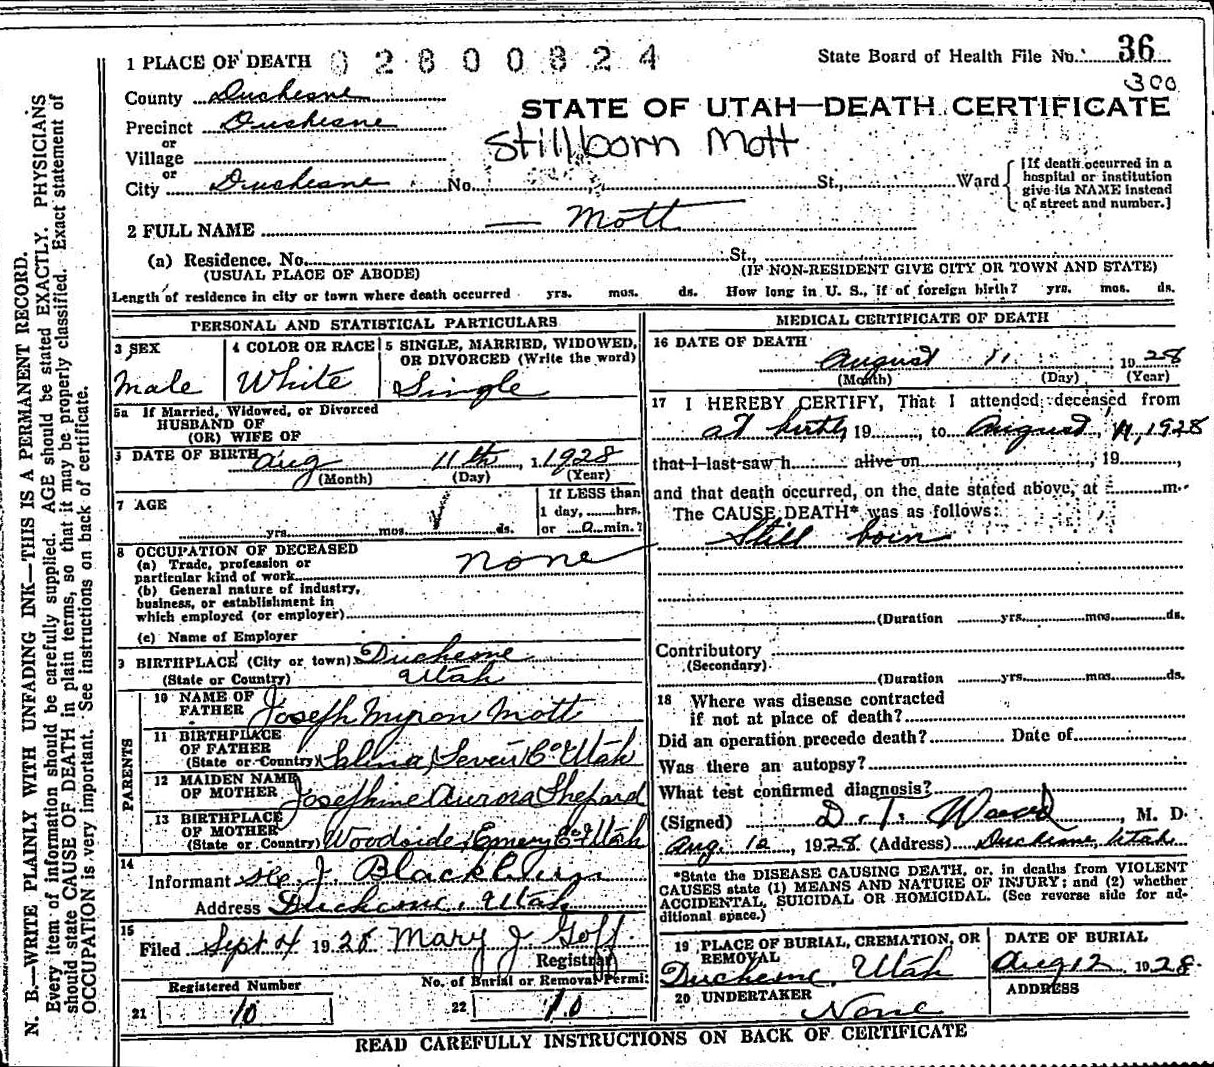 1 PLACE OF DEATH 02800824
State Board of Health File No. 36
300
County Duchesne
STATE OF UTAH—DEATH CERTIFICATE
Precinct Duchesne
or
Village
Stillborn Mott
or
City Duchesne No. St., Ward
[If death occurred in a
hospital or institution
give its NAME instead
of street and number.]
2 FULL NAME — Mott
(a) Residence. No. St.,
(USUAL PLACE OF ABODE) (IF NON-RESIDENT GIVE CITY OR TOWN AND STATE)
Length of residence in city or town where death occurred yrs. mos. ds. How long in U. S., if of foreign birth? yrs. mos. ds.
PERSONAL AND STATISTICAL PARTICULARS
3 SEX
Male
4 COLOR OR RACE
White
5 SINGLE, MARRIED, WIDOWED,
OR DIVORCED (Write the word)
Single
5a If Married, Widowed, or Divorced
HUSBAND OF
(OR) WIFE OF
DATE OF BIRTH Aug 11th, 1928
(Month) (Day) (Year)
7 AGE
yrs. mos. ds.
If LESS than
1 day, hrs.
or 0 min.?
8 OCCUPATION OF DECEASED
(a) Trade, profession or
particular kind of work none
(b) General nature of industry,
business, or establishment in
which employed (or employer)
(c) Name of Employer
9 BIRTHPLACE (City or town) Duchesne
(State or Country) Utah
PARENTS
10 NAME OF
FATHER Joseph Myron Mott
11 BIRTHPLACE
OF FATHER
(State or Country) Salina, Sevier Co Utah
12 MAIDEN NAME
OF MOTHER Josephine Aurora Shepard
13 BIRTHPLACE
OF MOTHER
(State or Country) Woodside, Emery Co Utah
14
Informant J. Blackburn
Address Duchesne, Utah
15
Filed Sept 4 1928 Mary J Goff
Registrar
Registered Number
21 10
No. of Burial or Removal Permit
22 10
MEDICAL CERTIFICATE OF DEATH
16 DATE OF DEATH
August 11 1928
(Month) (Day) (Year)
17 I HEREBY CERTIFY, That I attended deceased from
at birth, 19, to August, 11, 1928
that I last saw h alive on, 19,
and that death occurred, on the date stated above, at m.
The CAUSE DEATH* was as follows:
Still born
(Duration yrs. mos. ds.
Contributory
(Secondary)
(Duration yrs. mos. ds.
18 Where was disease contracted
if not at place of death?
Did an operation precede death? Date of
Was there an autopsy?
What test confirmed diagnosis?
(Signed), M. D.
Aug. 12, 1928. (Address) Duchesne, Utah
*State the DISEASE CAUSING DEATH, or, in deaths from VIOLENT
CAUSES state (1) MEANS AND NATURE OF INJURY; and (2) whether
ACCIDENTAL, SUICIDAL OR HOMICIDAL. (See reverse side for ad-
ditional space.)
19 PLACE OF BURIAL, CREMATION, OR
REMOVAL
Duchesne, Utah
DATE OF BURIAL
Aug 12 1928
20 UNDERTAKER
None
ADDRESS
READ CAREFULLY INSTRUCTIONS ON BACK OF CERTIFICATE
N. B.—WRITE PLAINLY WITH UNFADING INK—THIS IS A PERMANENT RECORD.
Every item of information should be carefully supplied. AGE should be stated EXACTLY. PHYSICIANS
should state CAUSE OF DEATH in plain terms, so that it may be properly classified. Exact statement of
OCCUPATION is very important. See instructions on back of certificate.